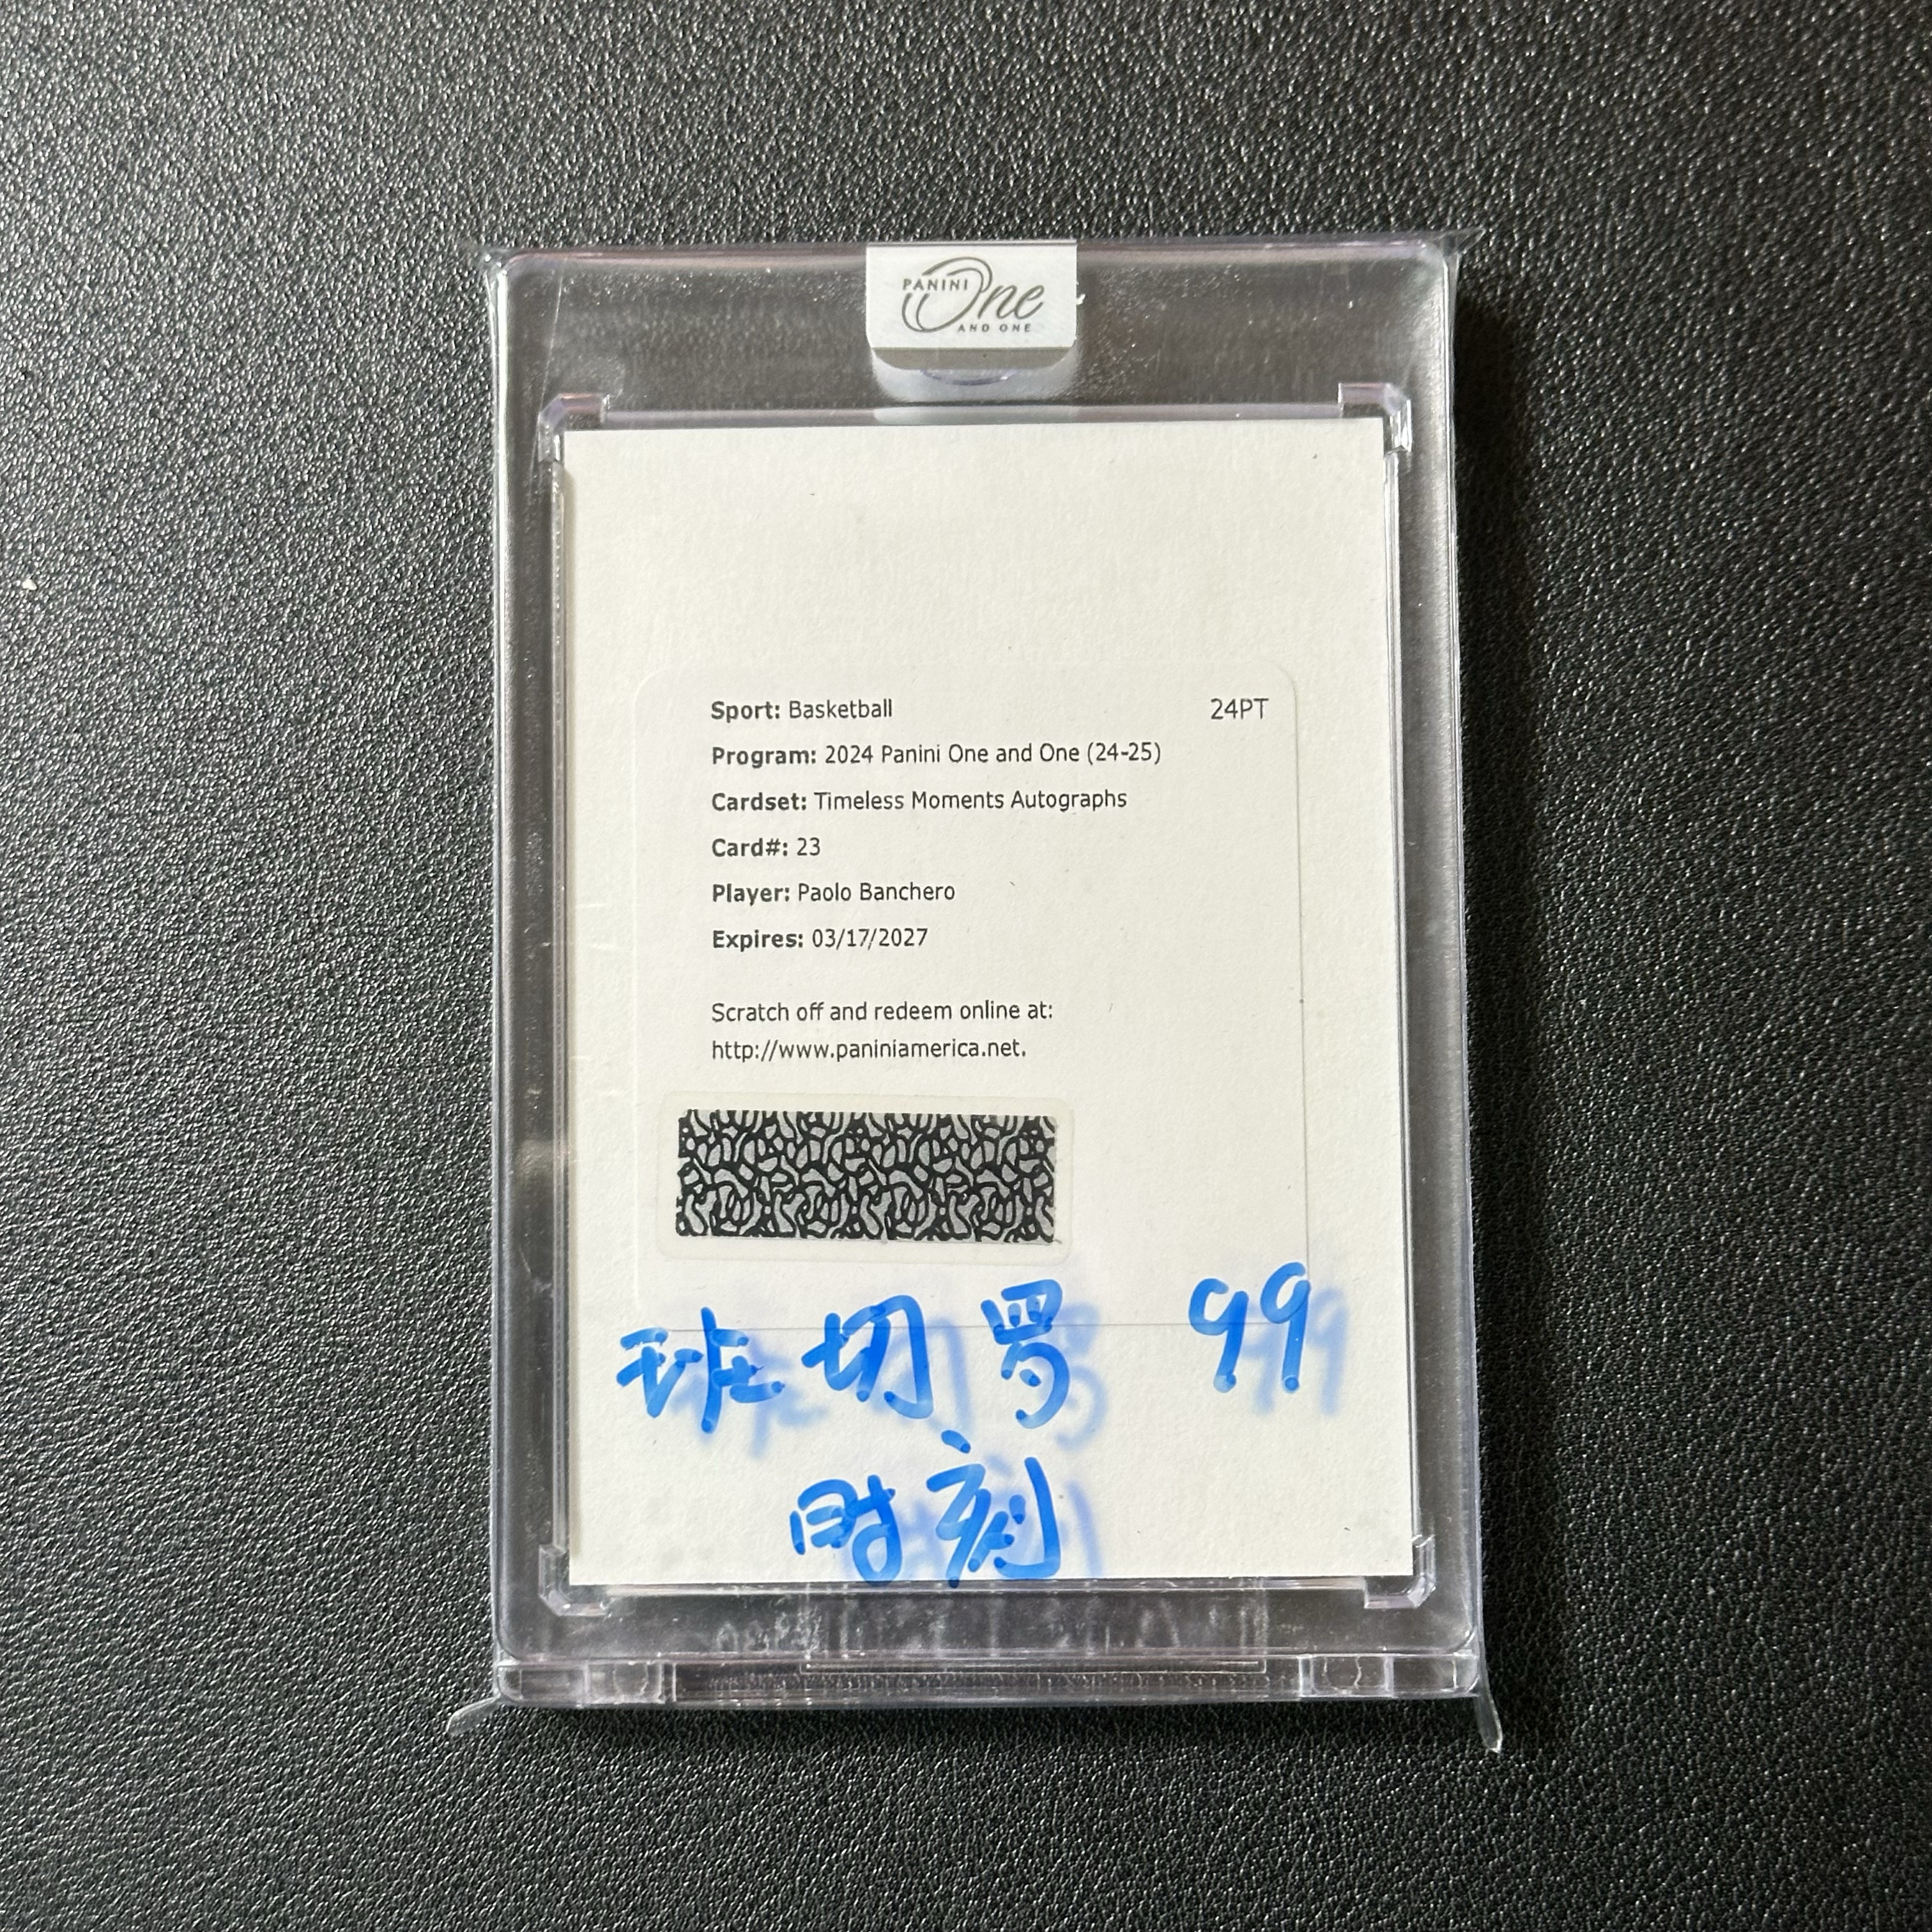 PANINI
One
AND ONE
Sport: Basketball 24PT
Program: 2024 Panini One and One (24-25)
Cardset: Timeless Moments Autographs
Card#: 23
Player: Paolo Banchero
Expires: 03/17/2027
Scratch off and redeem online at:
http://www.paniniamerica.net.
班切罗 99
时刻